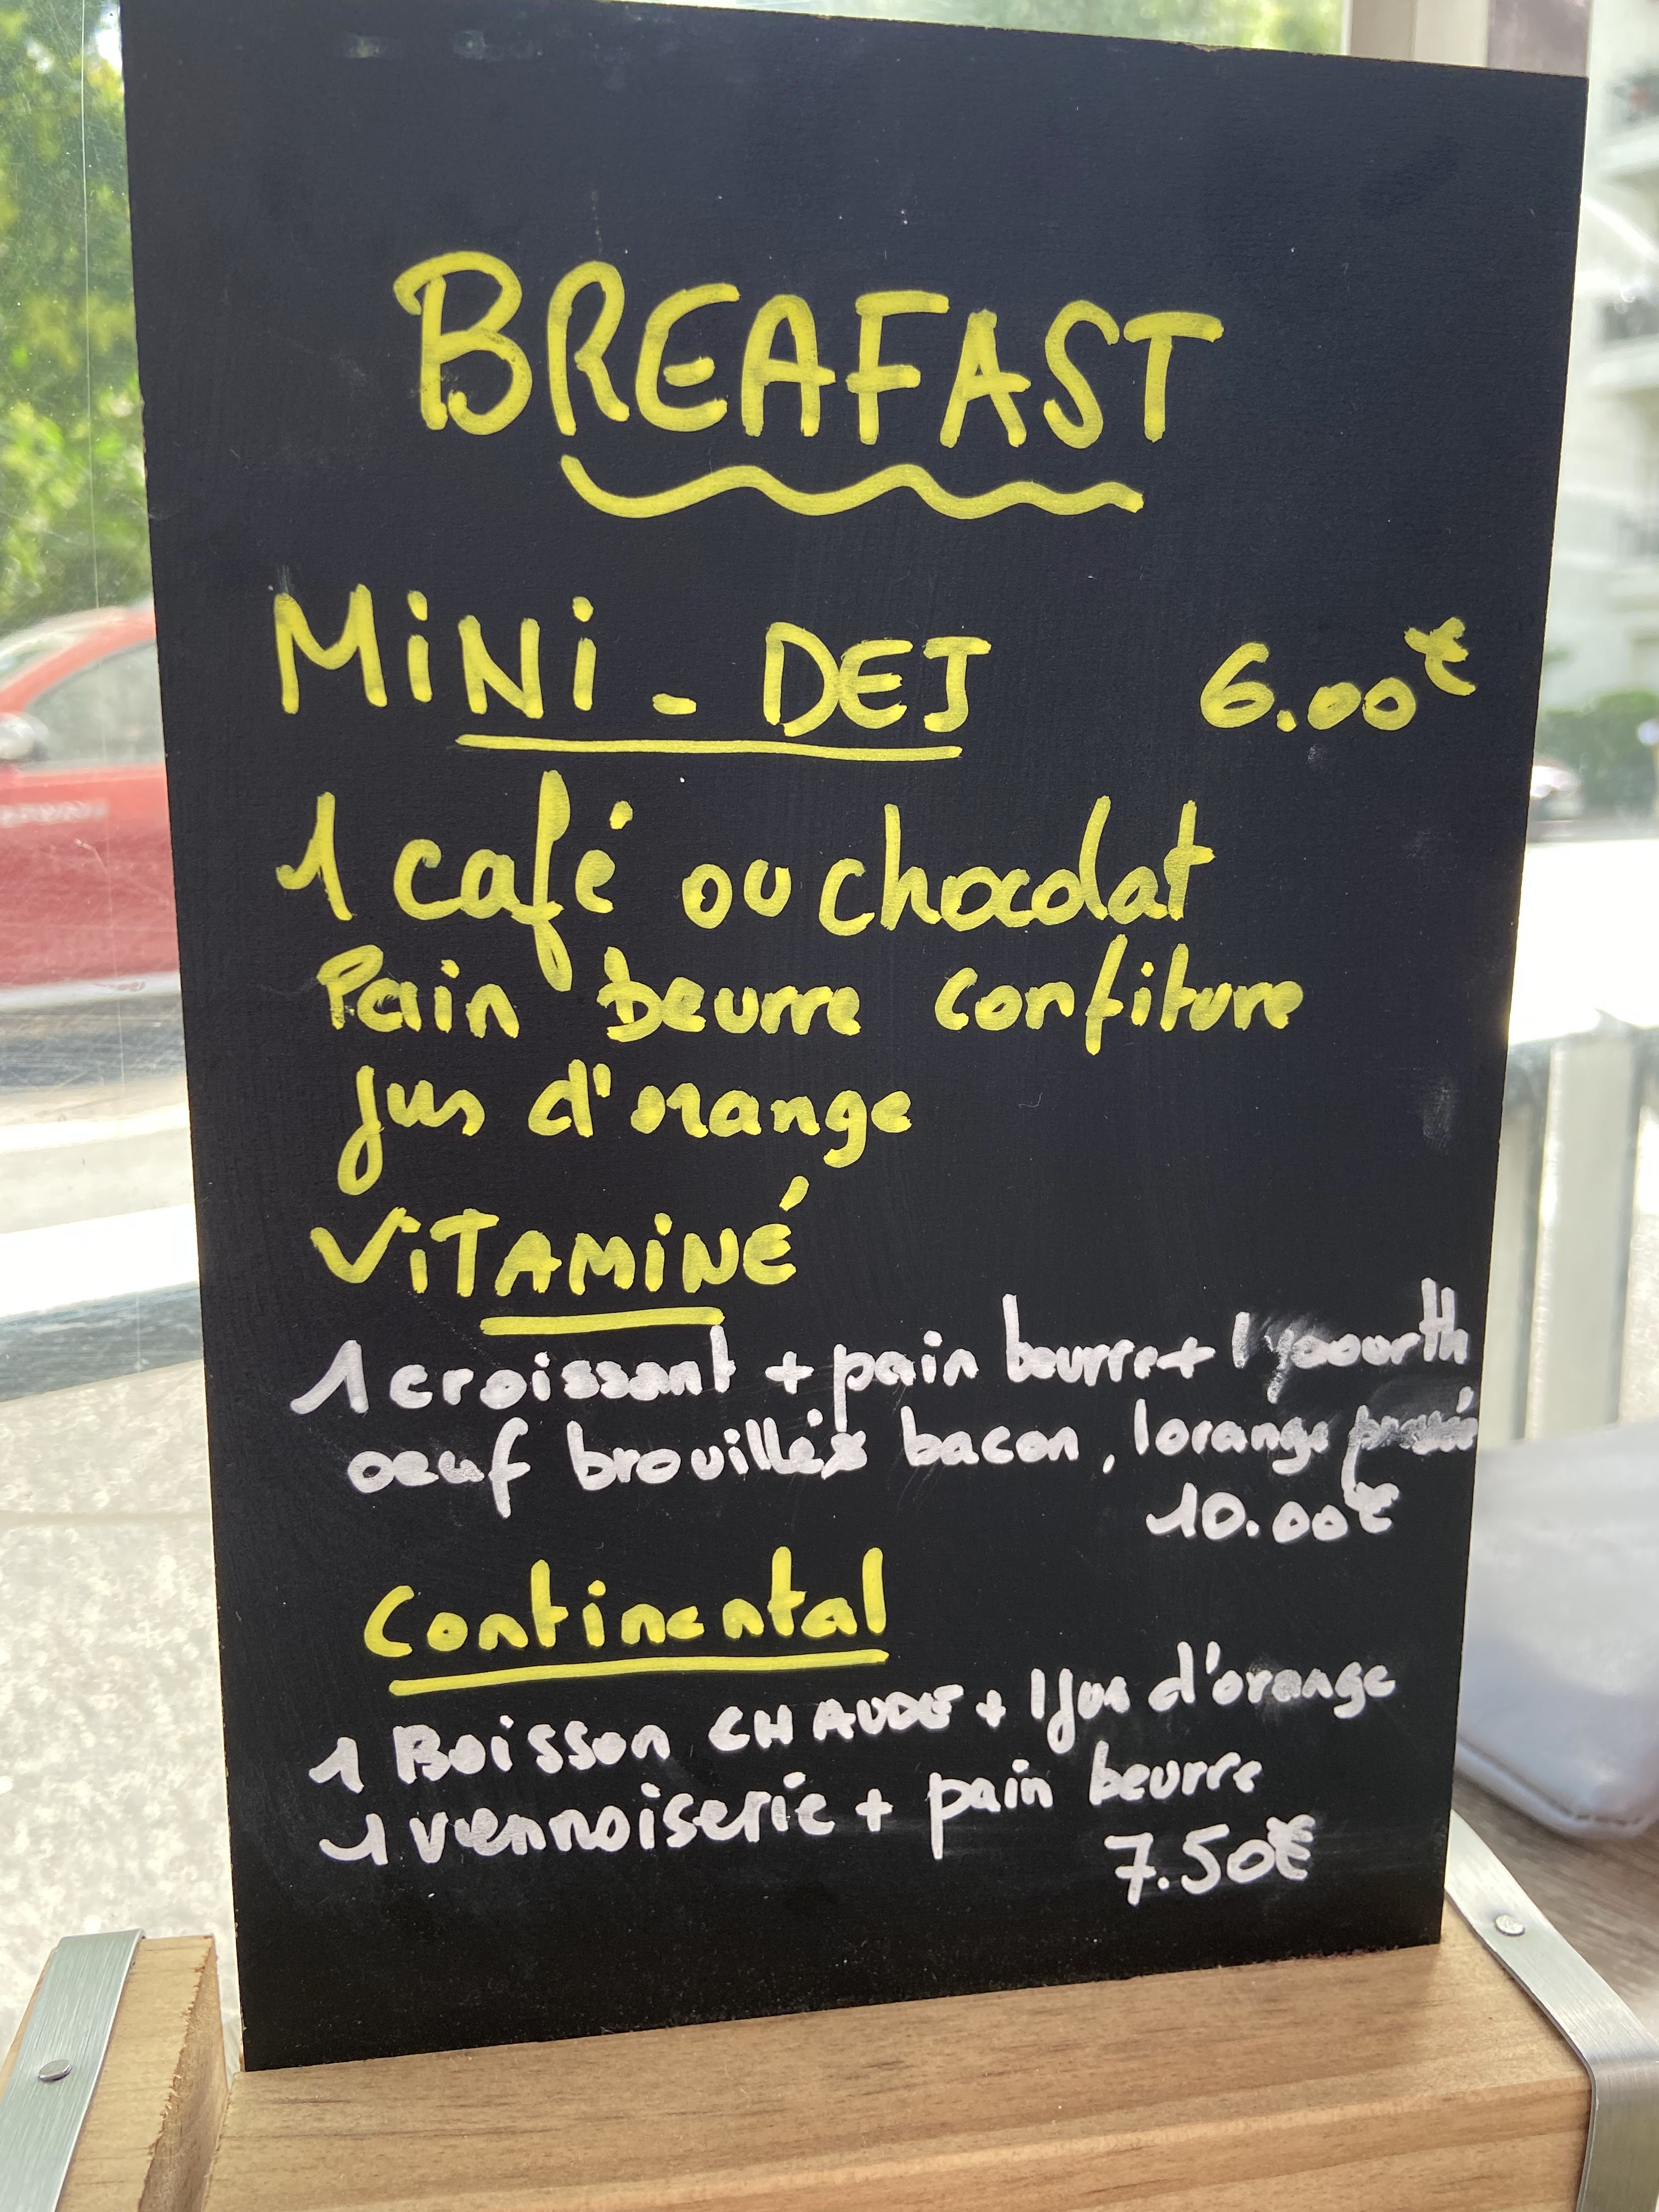 BREAFAST
MiNi - DEJ 6.00€
1 café ou chocolat
Pain beurre confiture
Jus d'orange
ViTAMiNÉ
1 croissant + pain beurre + 1 yaourth
oeuf brouillés bacon, 1 orange
10.00€
Continental
1 Boisson CHAUDE + 1 Jus d'orange
1 viennoiserie + pain beurre
7.50€